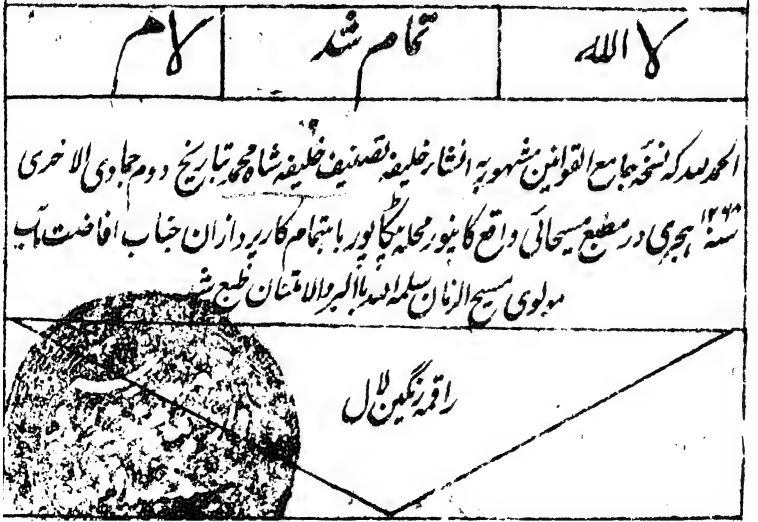 لا الله تمام شد لا هم
الحمد لله که نسخهٔ جامع القوانین مشهور به انشاء خلیفه تصنیف خلیفه شاه محمد بتاریخ دوم جمادی الاخری
سنه ۱۲۶۸ هجری در مطبع مسیحائی واقع کانپور محله پٹکاپور باهتمام کارپردازان جناب افاضت مآب
مولوی مسیح الزمان سلمه الله بالبر والامتنان طبع شد
راقمه رنگین لال